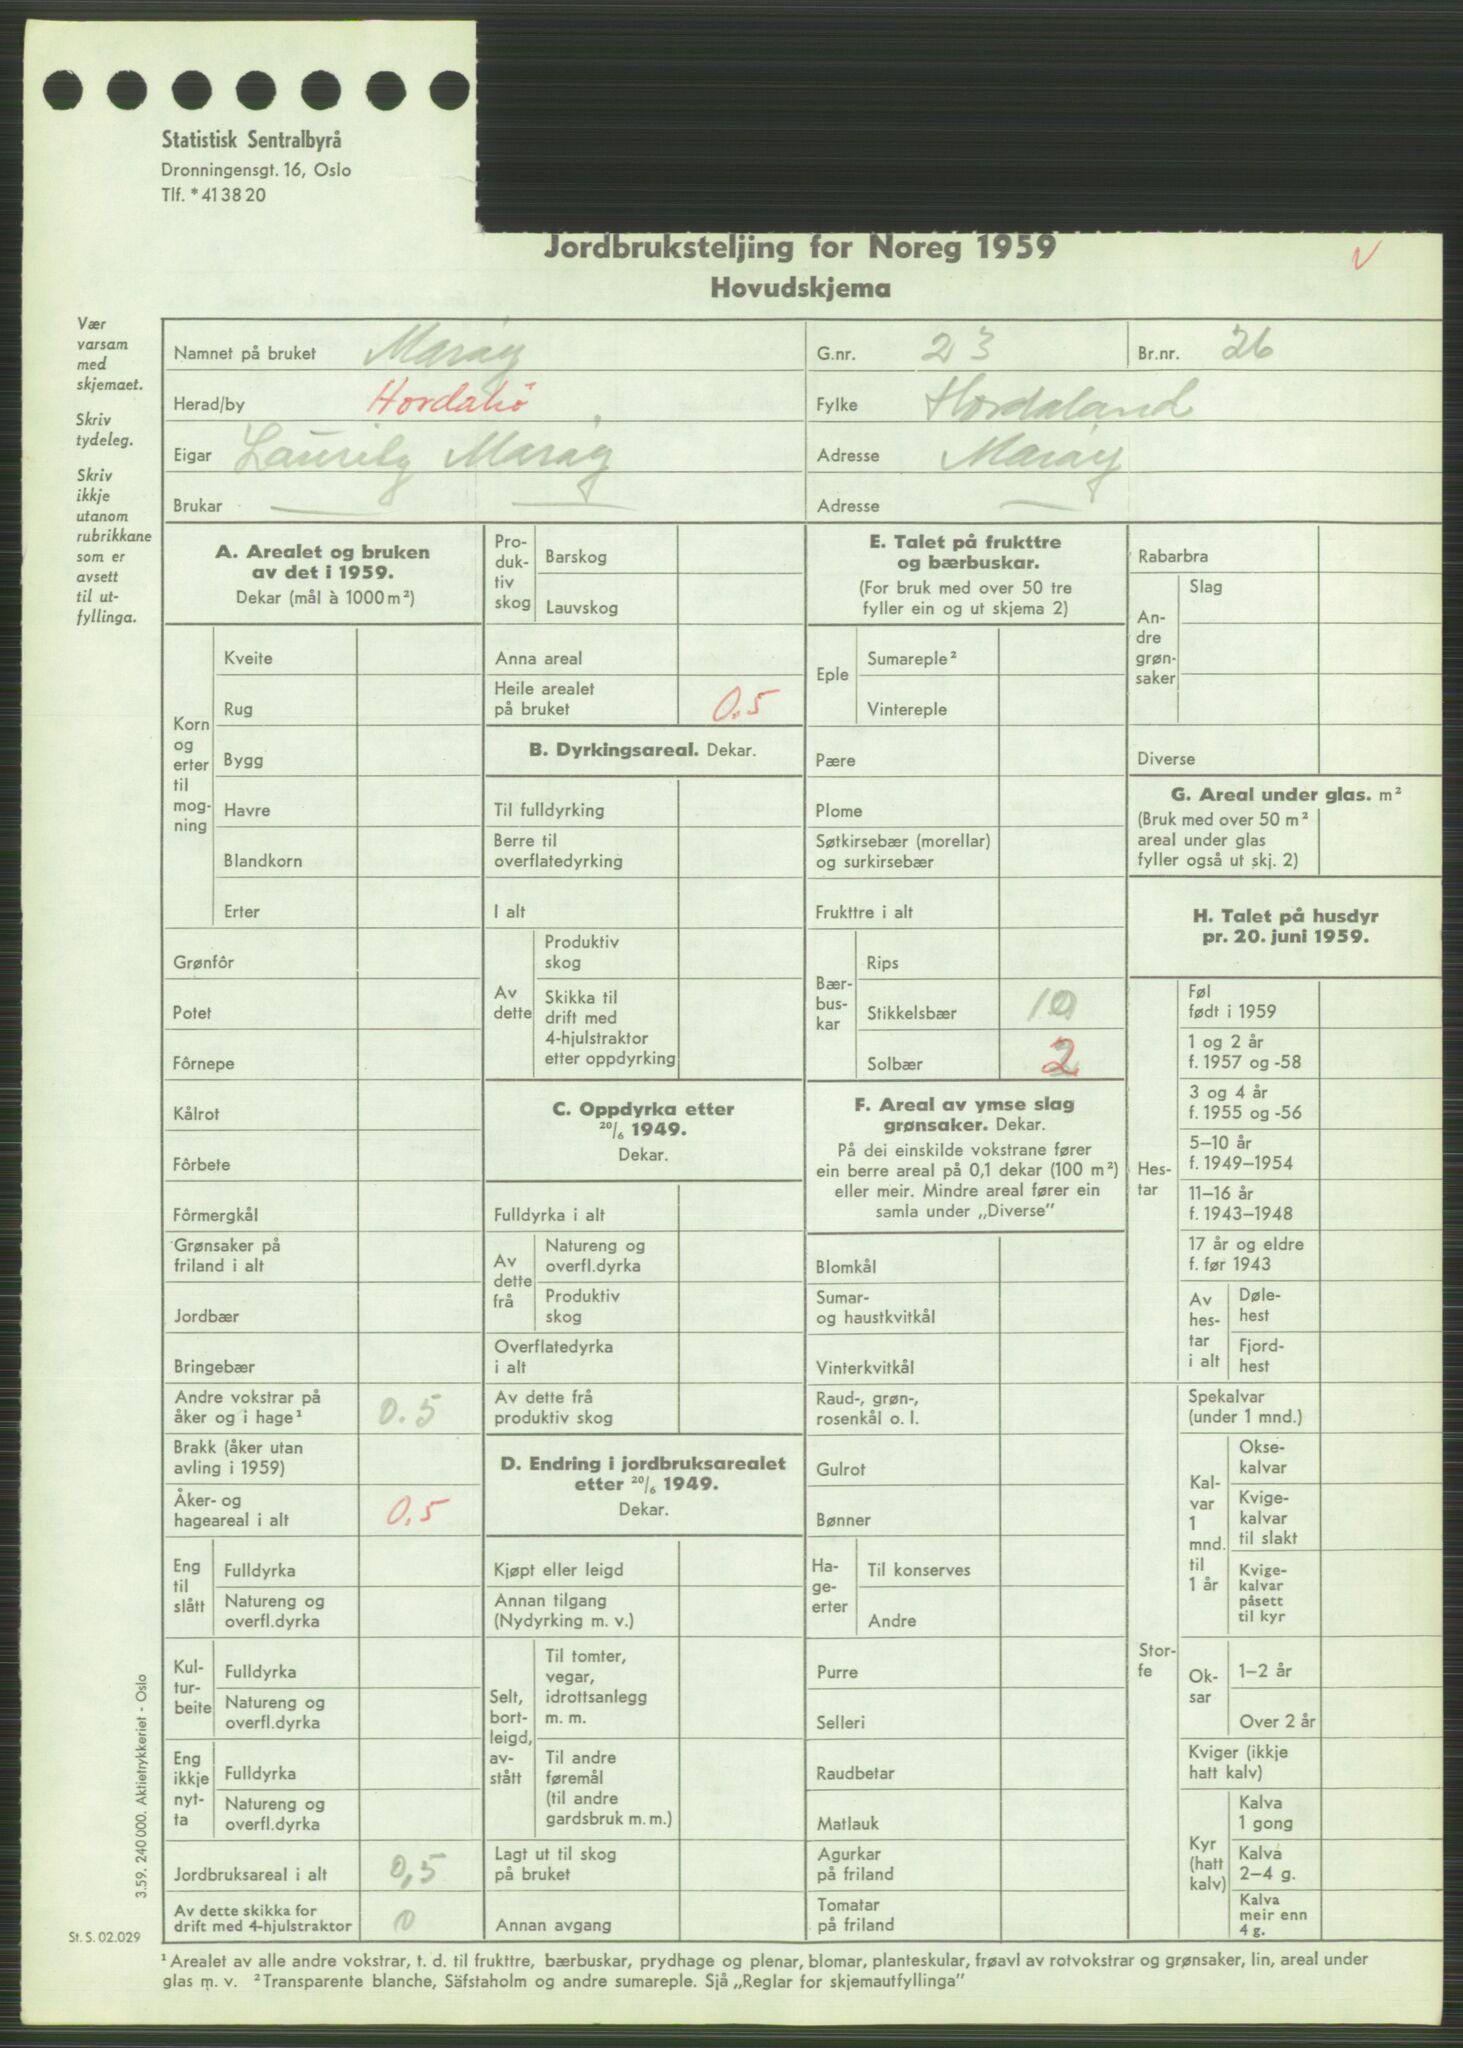 Statistisk Sentralbyrå
Dronningensgt. 16, Oslo
Tlf. *41 38 20
Jordbruksteljing for Noreg 1959
Hovudskjema
V
Vær
varsam
med
skjemaet.
Skriv
tydeleg.
Skriv
ikkje
utanom
rubrikkane
som er
avsett
til ut-
fyllinga.
Namnet på bruket Marøy G.nr. 23 Br.nr. 26
Herad/by Hordabø Fylke Hordaland
Eigar Laurits Marøy Adresse Marøy
Brukar — — Adresse —
A. Arealet og bruken
av det i 1959.
Dekar (mål à 1000 m²)
Korn
og
erter
til
mog-
ning
Kveite
Rug
Bygg
Havre
Blandkorn
Erter
Grønfôr
Potet
Fôrnepe
Kålrot
Fôrbete
Fôrmergkål
Grønsaker på
friland i alt
Jordbær
Bringebær
Andre vokstrar på
åker og i hage¹ 0.5
Brakk (åker utan
avling i 1959)
Åker- og
hageareal i alt 0.5
Eng
til
slått
Fulldyrka
Natureng og
overfl.dyrka
Kul-
tur-
beite
Fulldyrka
Natureng og
overfl.dyrka
Eng
ikkje
nyt-
ta
Fulldyrka
Natureng og
overfl.dyrka
Jordbruksareal i alt 0,5
Av dette skikka for
drift med 4-hjulstraktor 0
Pro-
duk-
tiv
skog
Barskog
Lauvskog
Anna areal
Heile arealet
på bruket 0.5
B. Dyrkingsareal. Dekar.
Til fulldyrking
Berre til
overflatedyrking
I alt
Av
dette
Produktiv
skog
Skikka til
drift med
4-hjulstraktor
etter oppdyrking
C. Oppdyrka etter
20/6 1949.
Dekar.
Fulldyrka i alt
Av
dette
frå
Natureng og
overfl.dyrka
Produktiv
skog
Overflatedyrka
i alt
Av dette frå
produktiv skog
D. Endring i jordbruksarealet
etter 20/6 1949.
Dekar.
Kjøpt eller leigd
Annan tilgang
(Nydyrking m. v.)
Selt,
bort-
leigd,
av-
stått
Til tomter,
vegar,
idrottsanlegg
m. m.
Til andre
føremål
(til andre
gardsbruk m. m.)
Lagt ut til skog
på bruket
Annan avgang
E. Talet på frukttre
og bærbuskar.
(For bruk med over 50 tre
fyller ein og ut skjema 2)
Eple
Sumareple²
Vintereple
Pære
Plome
Søtkirsebær (morellar)
og surkirsebær
Frukttre i alt
Bær-
bus-
kar
Rips
Stikkelsbær 10
Solbær 2
F. Areal av ymse slag
grønsaker. Dekar.
På dei einskilde vokstrane fører
ein berre areal på 0,1 dekar (100 m²)
eller meir. Mindre areal fører ein
samla under „Diverse”
Blomkål
Sumar-
og haustkvitkål
Vinterkvitkål
Raud-, grøn-,
rosenkål o. l.
Gulrot
Bønner
Ha-
ge-
erter
Til konserves
Andre
Purre
Selleri
Raudbetar
Matlauk
Agurkar
på friland
Tomatar
på friland
Rabarbra
An-
dre
grøn-
saker
Slag
Diverse
G. Areal under glas. m²
(Bruk med over 50 m²
areal under glas
fyller også ut skj. 2)
H. Talet på husdyr
pr. 20. juni 1959.
Hes-
tar
Føl
født i 1959
1 og 2 år
f. 1957 og -58
3 og 4 år
f. 1955 og -56
5–10 år
f. 1949–1954
11–16 år
f. 1943–1948
17 år og eldre
f. før 1943
Av
hes-
tar
i alt
Døle-
hest
Fjord-
hest
Stor-
fe
Spekalvar
(under 1 mnd.)
Kal-
var
1
mnd.
til
1 år
Okse-
kalvar
Kvige-
kalvar
til slakt
Kvige-
kalvar
påsett
til kyr
Ok-
sar
1–2 år
Over 2 år
Kviger (ikkje
hatt kalv)
Kyr
(hatt
kalv)
Kalva
1 gong
Kalva
2–4 g.
Kalva
meir enn
4 g.
3.59. 240 000. Aktietrykkeriet - Oslo
St. S. 02.029
¹ Arealet av alle andre vokstrar, t. d. til frukttre, bærbuskar, prydhage og plenar, blomar, planteskular, frøavl av rotvokstrar og grønsaker, lin, areal under
glas m. v. ² Transparente blanche, Säfstaholm og andre sumareple. Sjå „Reglar for skjemautfyllinga”